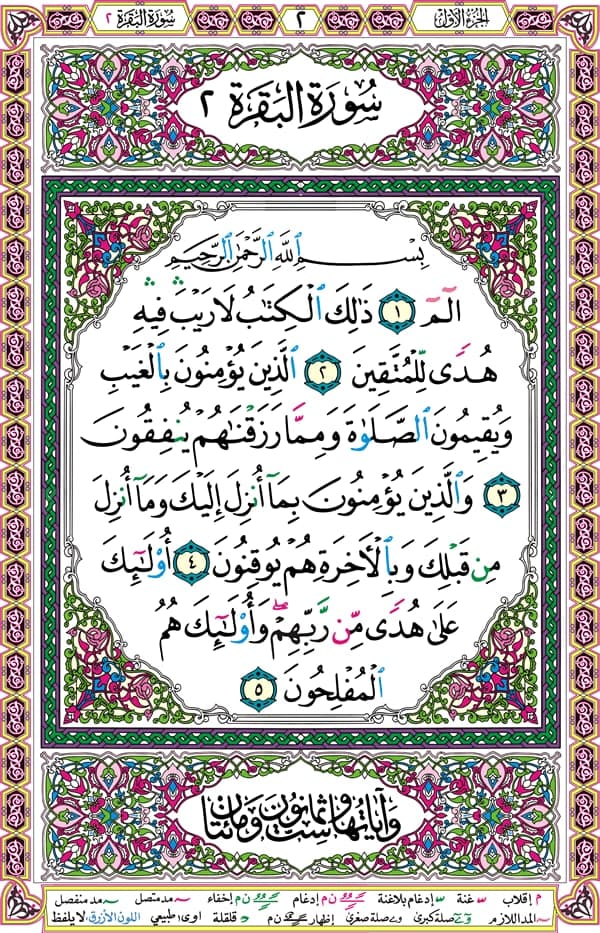 الجزء الأول ٢ سورة البقرة ٢
سُورَةُ البَقَرَةِ ٢
بِسْمِ ٱللَّهِ ٱلرَّحْمَٰنِ ٱلرَّحِيمِ
الٓمٓ ١ ذَٰلِكَ ٱلْكِتَٰبُ لَا رَيْبَ ۛ فِيهِ ۛ
هُدًى لِّلْمُتَّقِينَ ٢ ٱلَّذِينَ يُؤْمِنُونَ بِٱلْغَيْبِ
وَيُقِيمُونَ ٱلصَّلَوٰةَ وَمِمَّا رَزَقْنَٰهُمْ يُنفِقُونَ
٣ وَٱلَّذِينَ يُؤْمِنُونَ بِمَآ أُنزِلَ إِلَيْكَ وَمَآ أُنزِلَ
مِن قَبْلِكَ وَبِٱلْـَٔاخِرَةِ هُمْ يُوقِنُونَ ٤ أُو۟لَٰٓئِكَ
عَلَىٰ هُدًى مِّن رَّبِّهِمْ ۖ وَأُو۟لَٰٓئِكَ هُمُ
ٱلْمُفْلِحُونَ ٥
وآياتها ست وثمانون ومائتان
م إقلاب غنة إدغام بلاغنة ن م إدغام ن م إخفاء مد متصل مد منفصل
المد اللازم صلة كبرى صلة صغرى إظهار ن م قلقلة اوى طبيعي اللون الأزرق لا يلفظ